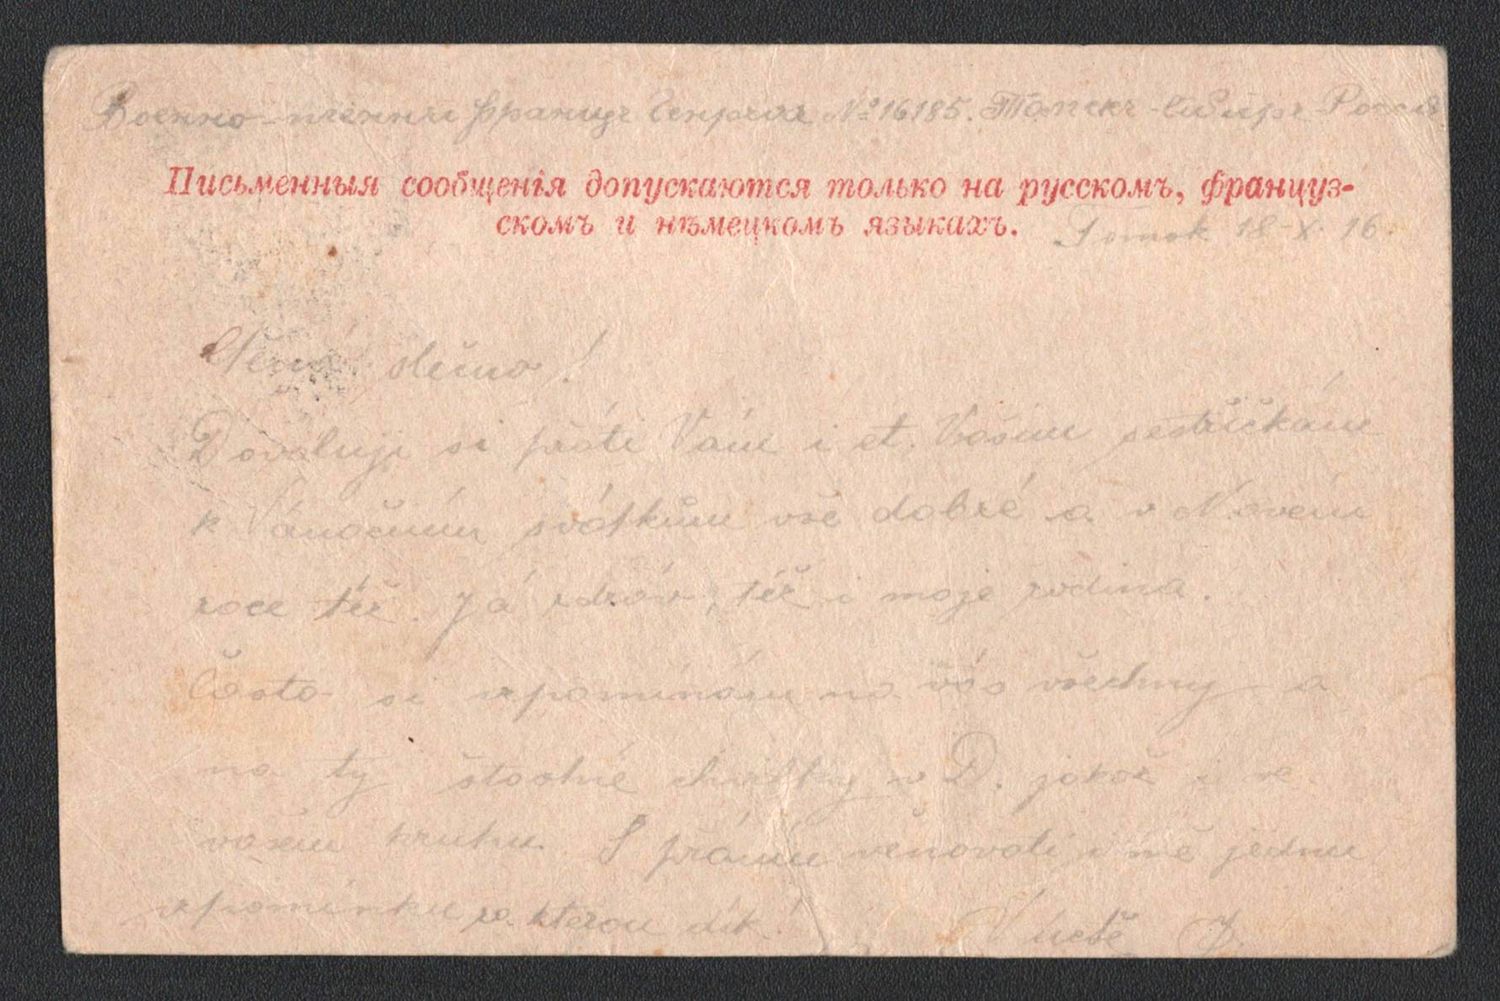 Военно-пленный Францъ № 16185. Томскъ-Сибирь
Письменныя сообщенія допускаются только на русскомъ, француз-
скомъ и нѣмецкомъ языкахъ.
Tomsk 18-X. 16.
slečno!
Dovoluji si přáti Vám i ct. Vašim sestřičkám
k Vánočním svátkům vše dobré a v Novém
roce též. Já zdráv, též i moje rodina.
Často si vzpomínám na vás všechny a
na ty šťastné chvilky v D. jakož i ve
vašem kruhu. S přáním věnovati i mě jednu
vzpomínku za kterou dík!
V úctě J.